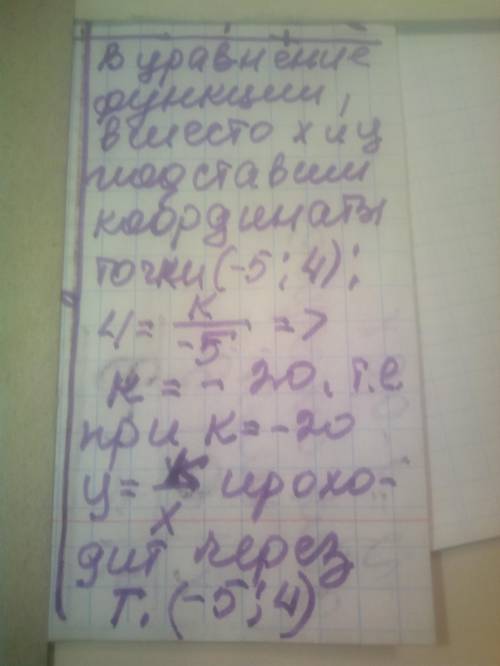 в уравнение
функции,
вместо x и y
подставим
координаты
точки (-5; 4);
4 = к/-5 =>
к = - 20, т.е
при к = -20
y = к/x прохо-
дит через
т. (-5; 4)